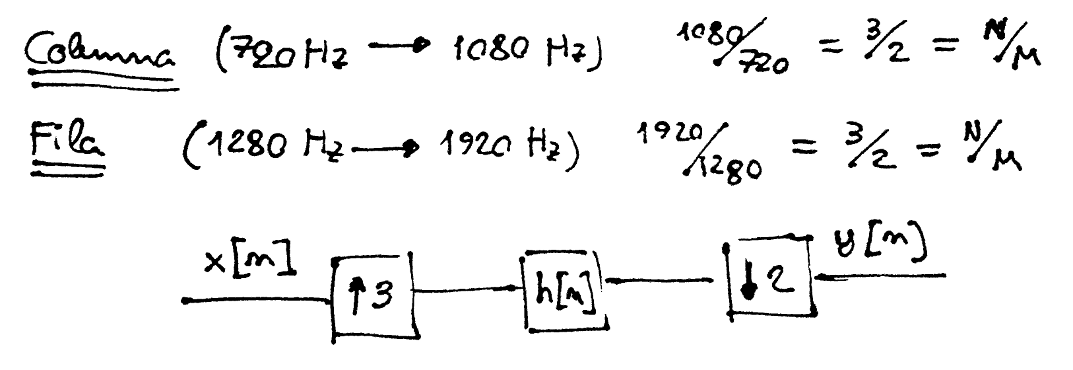 Columna (720 Hz → 1080 Hz) 1080/720 = 3/2 = N/M
Fila (1280 Hz → 1920 Hz) 1920/1280 = 3/2 = N/M
x[n] ↑3 h[n] ↓2 y[n]